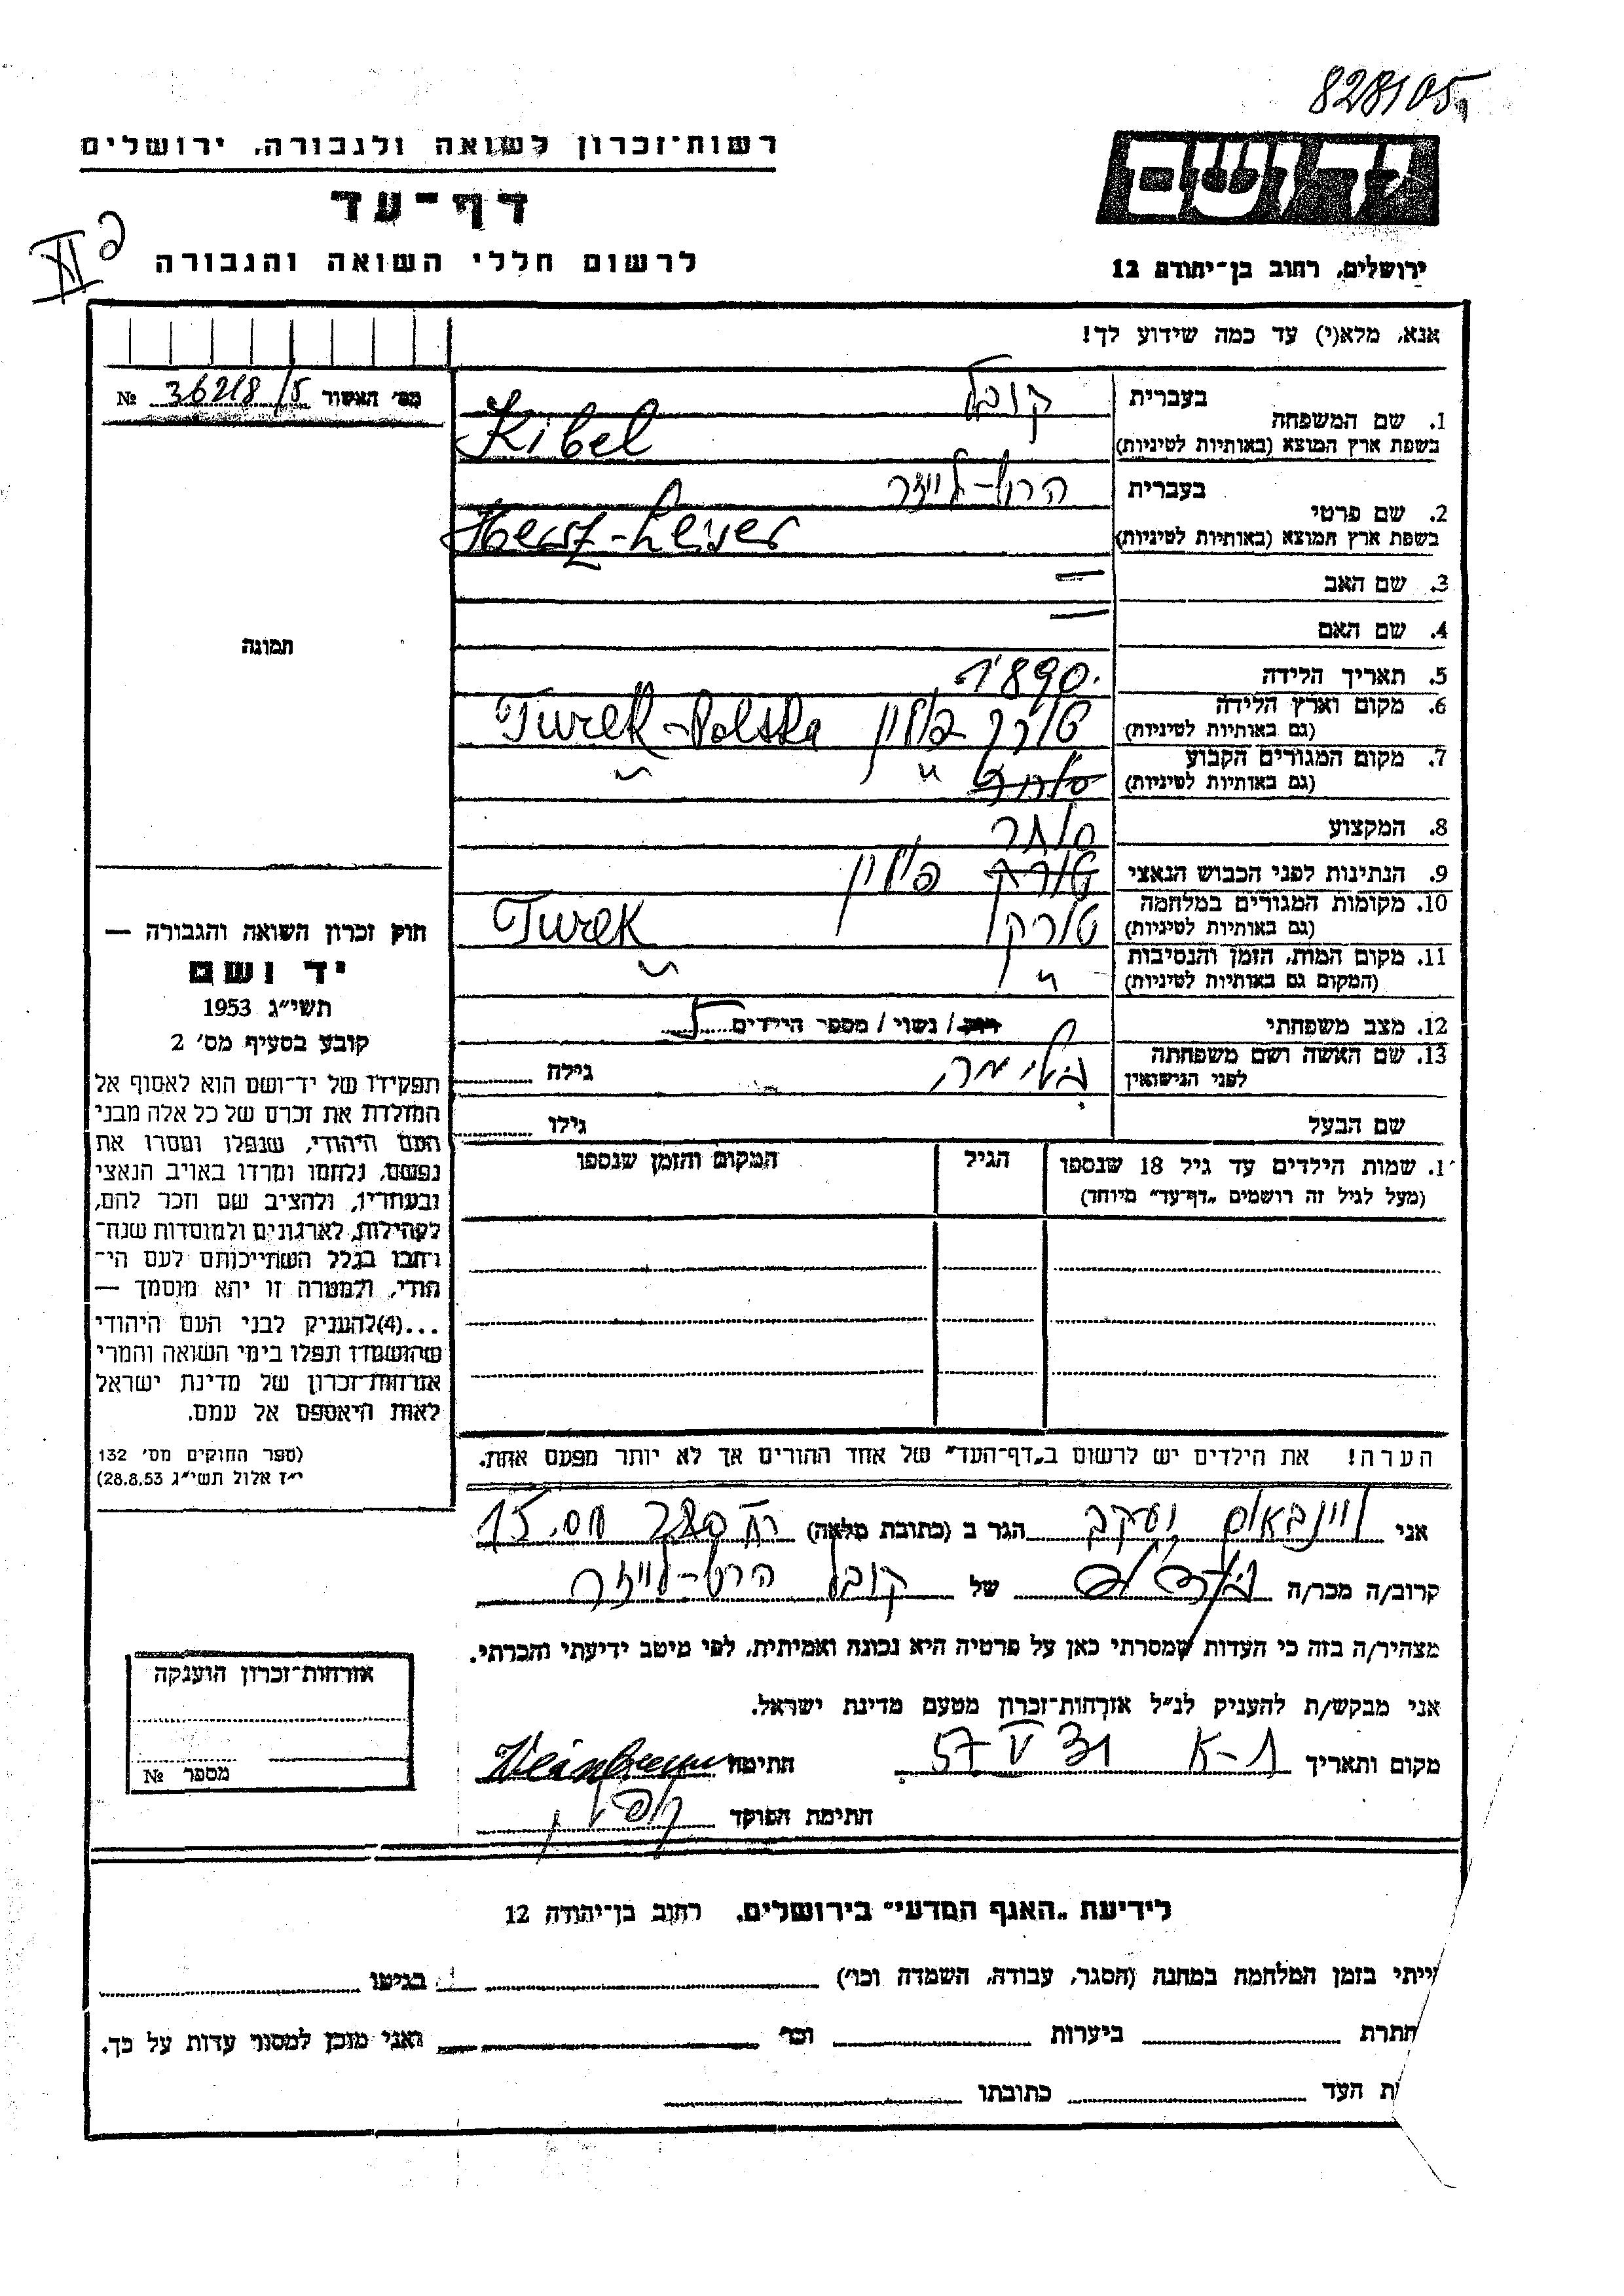 828105
רשות־זכרון לשואה ולגבורה, ירושלים
דף־עד
לרשום חללי השואה והגבורה
ירושלים, רחוב בן־יהודה 12
אנא, מלא(י) עד כמה שידוע לך!
מס' האשור 36218/5 №
1. שם המשפחה
בעברית קובל
בשפת ארץ המוצא (באותיות לטיניות) Kibel
2. שם פרטי
בעברית הרש-לייזר
בשפת ארץ המוצא (באותיות לטיניות) Hersz-Lejzer
3. שם האב —
4. שם האם —
5. תאריך הלידה 1890
6. מקום וארץ הלידה
(גם באותיות לטיניות) טורק פולין Turek-Polska
7. מקום המגורים הקבוע
(גם באותיות לטיניות) סוחר "
8. המקצוע סוחר
9. הנתינות לפני הכבוש הנאצי טורק פולין
10. מקומות המגורים במלחמה
(גם באותיות לטיניות) טורק Turek
11. מקום המות, הזמן והנסיבות
(המקום גם באותיות לטיניות) " "
12. מצב משפחתי רוק / נשוי / מספר הילדים 5
13. שם האשה ושם משפחתה
לפני הנישואין
גילה
שם הבעל
גילו
שמות הילדים עד גיל 18 שנספו
(מעל לגיל זה רושמים "דף־עד" מיוחד)
הגיל
המקום והזמן שנספו
הערה! את הילדים יש לרשום ב"דף־העד" של אחד ההורים אך לא יותר מפעם אחת.
תמונה
חוק זכרון השואה והגבורה —
יד ושם
תשי"ג 1953
קובע בסעיף מס' 2
תפקידו של יד־ושם הוא לאסוף אל
המולדת את זכרם של כל אלה מבני
העם היהודי, שנפלו ומסרו את
נפשם, נלחמו ומרדו באויב הנאצי
ובעוזריו, ולהציב שם וזכר להם,
לקהילות, לארגונים ולמוסדות שנח־
רבו בגלל השתייכותם לעם הי־
הודי, ולמטרה זו יהא מוסמך —
...(4)להעניק לבני העם היהודי
שהושמדו ונפלו בימי השואה והמרי
אזרחות־זכרון של מדינת ישראל
לאות היאספם אל עמם.
(ספר החוקים מס' 132
י"ז אלול תשי"ג 28.8.53)
אני ויינבאום יעקב הגר ב (כתובת מלאה)
קרוב/ה מכר/ה של קובל הרש-לייזר
מצהיר/ה בזה כי העדות שמסרתי כאן על פרטיה היא נכונה ואמיתית, לפי מיטב ידיעתי והכרתי.
אני מבקש/ת להעניק לנ"ל אזרחות־זכרון מטעם מדינת ישראל.
מקום ותאריך 31 V 57 חתימה Weinbaum
חתימת הפוקד
אזרחות־זכרון הוענקה
מספר №
לידיעת "האגף המדעי" בירושלים, רחוב בן־יהודה 12
ייתי בזמן המלחמה במחנה (הסגר, עבודה, השמדה וכו') בגיטו
חתרת ביערות וכו' ואני מוכן למסור עדות על כך.
ת העד כתובתו